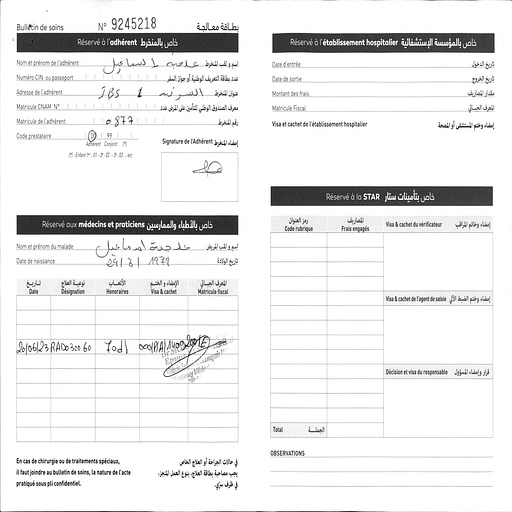 Bulletin de soins N° 9245218 بطاقة معالجة
Réservé à l'adhérent خاص بالمنخرط
Nom et prénom de l'adhérent اسم و لقب المنخرط
Numéro CIN ou passeport عدد بطاقة التعريف الوطنية أو جواز السفر
Adresse de l'adhérent عنوان المنخرط
Matricule CNAM N° معرف الصندوق الوطني للتأمين على المرض عدد
Matricule de l'adhérent 0877 رقم المنخرط
Code prestataire 00 99
Adhérent Conjoint
Signature de l'Adhérent إمضاء المنخرط
Réservé aux médecins et praticiens خاص بالأطباء والممارسين
Nom et prénom du malade خديجة اسماعيل اسم و لقب المريض
Date de naissance 29/3/1979 تاريخ الولادة
تاريخ نوعية العلاج الأتعاب الإمضاء و الختم المعرف الجبائي
Date Désignation Honoraires Visa & cachet Matricule fiscal
20/06/23 RAD03060 70d
En cas de chirurgie ou de traitements spéciaux,
il faut joindre au bulletin de soins, la nature de l'acte
pratiqué sous pli confidentiel.
في حالات الجراحة أو العلاج الخاص
يجب مصاحبة بطاقة العلاج، بنوع العمل المنجز،
في ظرف سري.
Réservé à l'établissement hospitalier خاص بالمؤسسة الإستشفائية
Date d'entrée تاريخ الدخول
Date de sortie تاريخ الخروج
Montant des frais مقدار المصاريف
Matricule Fiscal المعرف الجبائي
Visa et cachet de l'établissement hospitalier إمضاء وختم المستشفى أو المصحة
Réservé à la STAR خاص بتأمينات ستار
رمز العنوان المصاريف
Code rubrique Frais engagés
Visa & cachet du vérificateur إمضاء وختم المراقب
Visa & cachet de l'agent de saisie إمضاء وختم الضبط الآلي
Décision et visa du responsable قرار وإمضاء المسؤول
Total الجملة
OBSERVATIONS